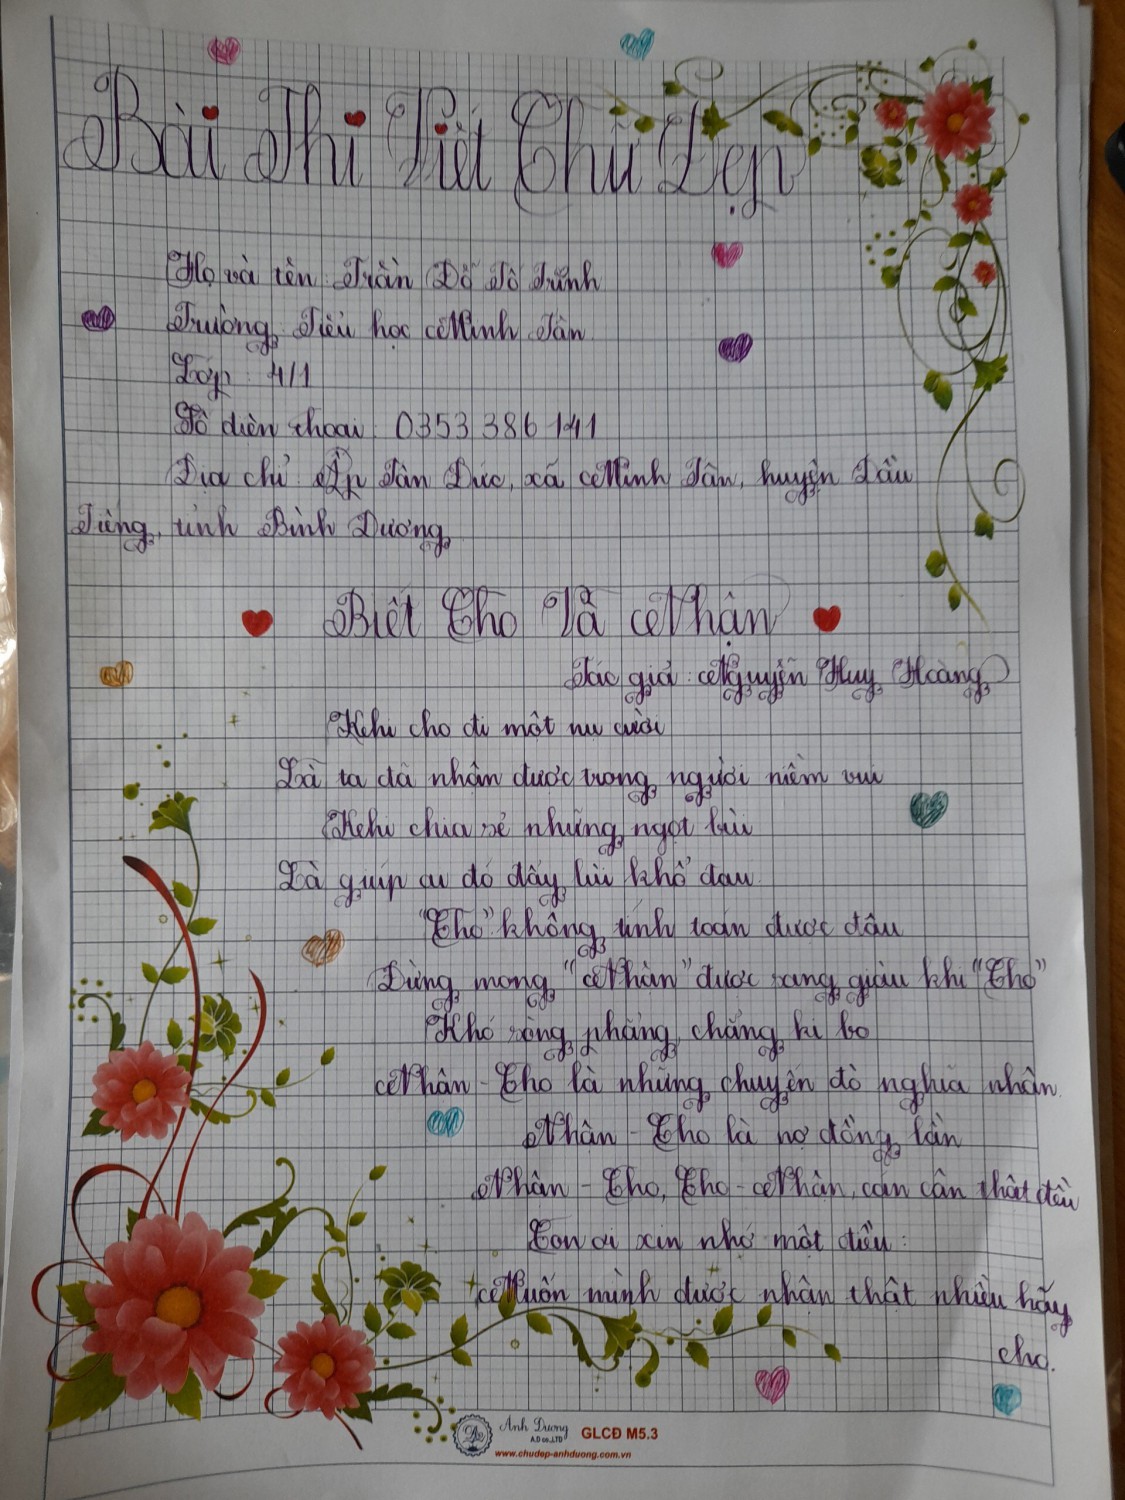 Bài Thi Viết Chữ Đẹp
Họ và tên: Trần Đỗ Tố Trinh
Trường: Tiểu học Minh Tân
Lớp: 4/1
Số điện thoại: 0353 386 141
Địa chỉ: Ấp Tân Đức, xã Minh Tân, huyện Dầu
Tiếng, tỉnh Bình Dương
Biết Cho Và Nhận
Tác giả: Nguyễn Huy Hoàng
Khi cho đi một nụ cười
Là ta đã nhận được trong người niềm vui
Khi chia sẻ những ngọt bùi
Là giúp ai đó đẩy lùi khổ đau.
"Cho" không tính toán được đâu
Đừng mong "Nhận" được sang giàu khi "Cho"
Khó sòng phẳng, chẳng ki bo
Nhận - Cho là những chuyện đò nghĩa nhân.
Nhận - Cho là nợ đồng lần
Nhận - Cho, Cho - Nhận, cán cân thật đều
Con ơi xin nhớ một điều:
Muốn mình được nhận thật nhiều hãy
cho.
Anh Dương
A.D co.,LTD
GLCĐ M5.3
www.chudep-anhduong.com.vn